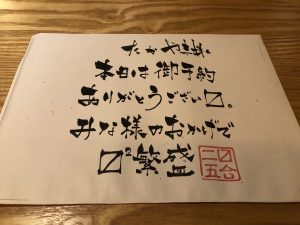 たかや様
本日は御予約
ありがとうござい〼。
みな様のおかげで
〼²繁盛
二〼
五合